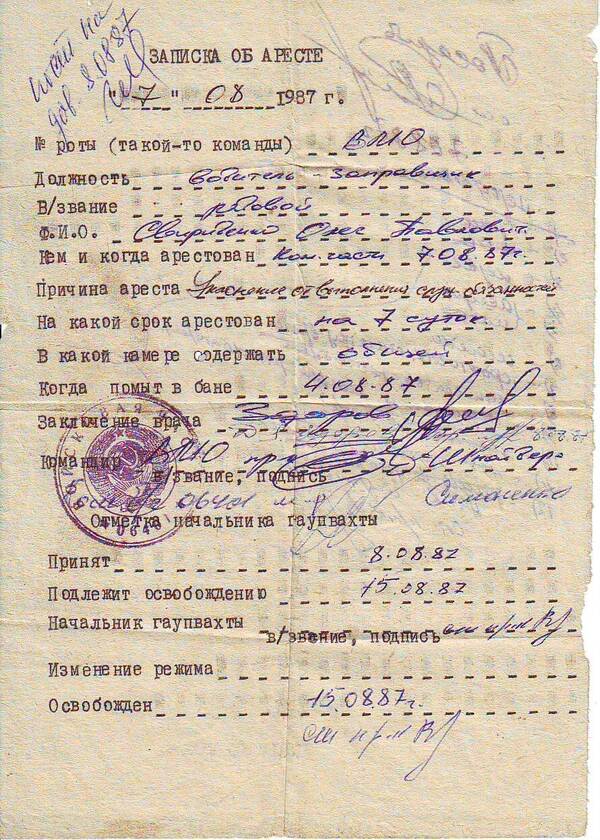 ЗАПИСКА ОБ АРЕСТЕ
"7" 08 1987 г.
№ роты (такой-то команды) ВМО
Должность водитель-заправщик
В/звание рядовой
Ф.И.О. Свириденко Олег Павлович
Кем и когда арестован Ком. части 7.08.87г.
Причина ареста Уклонение от выполнения служ. обязанностей
На какой срок арестован на 7 суток
В какой камере содержать общей
Когда помыт в бане 4.08.87
Заключение врача Здоров
Командир ВМО пр-к Шнайдер
в/звание, подпись
Симоненко
Отметка начальника гаупвахты
Принят 8.08.87
Подлежит освобождению 15.08.87
Начальник гаупвахты ст пр-к
в/звание, подпись
Изменение режима
Освобожден 15.08.87г.
ст пр-к